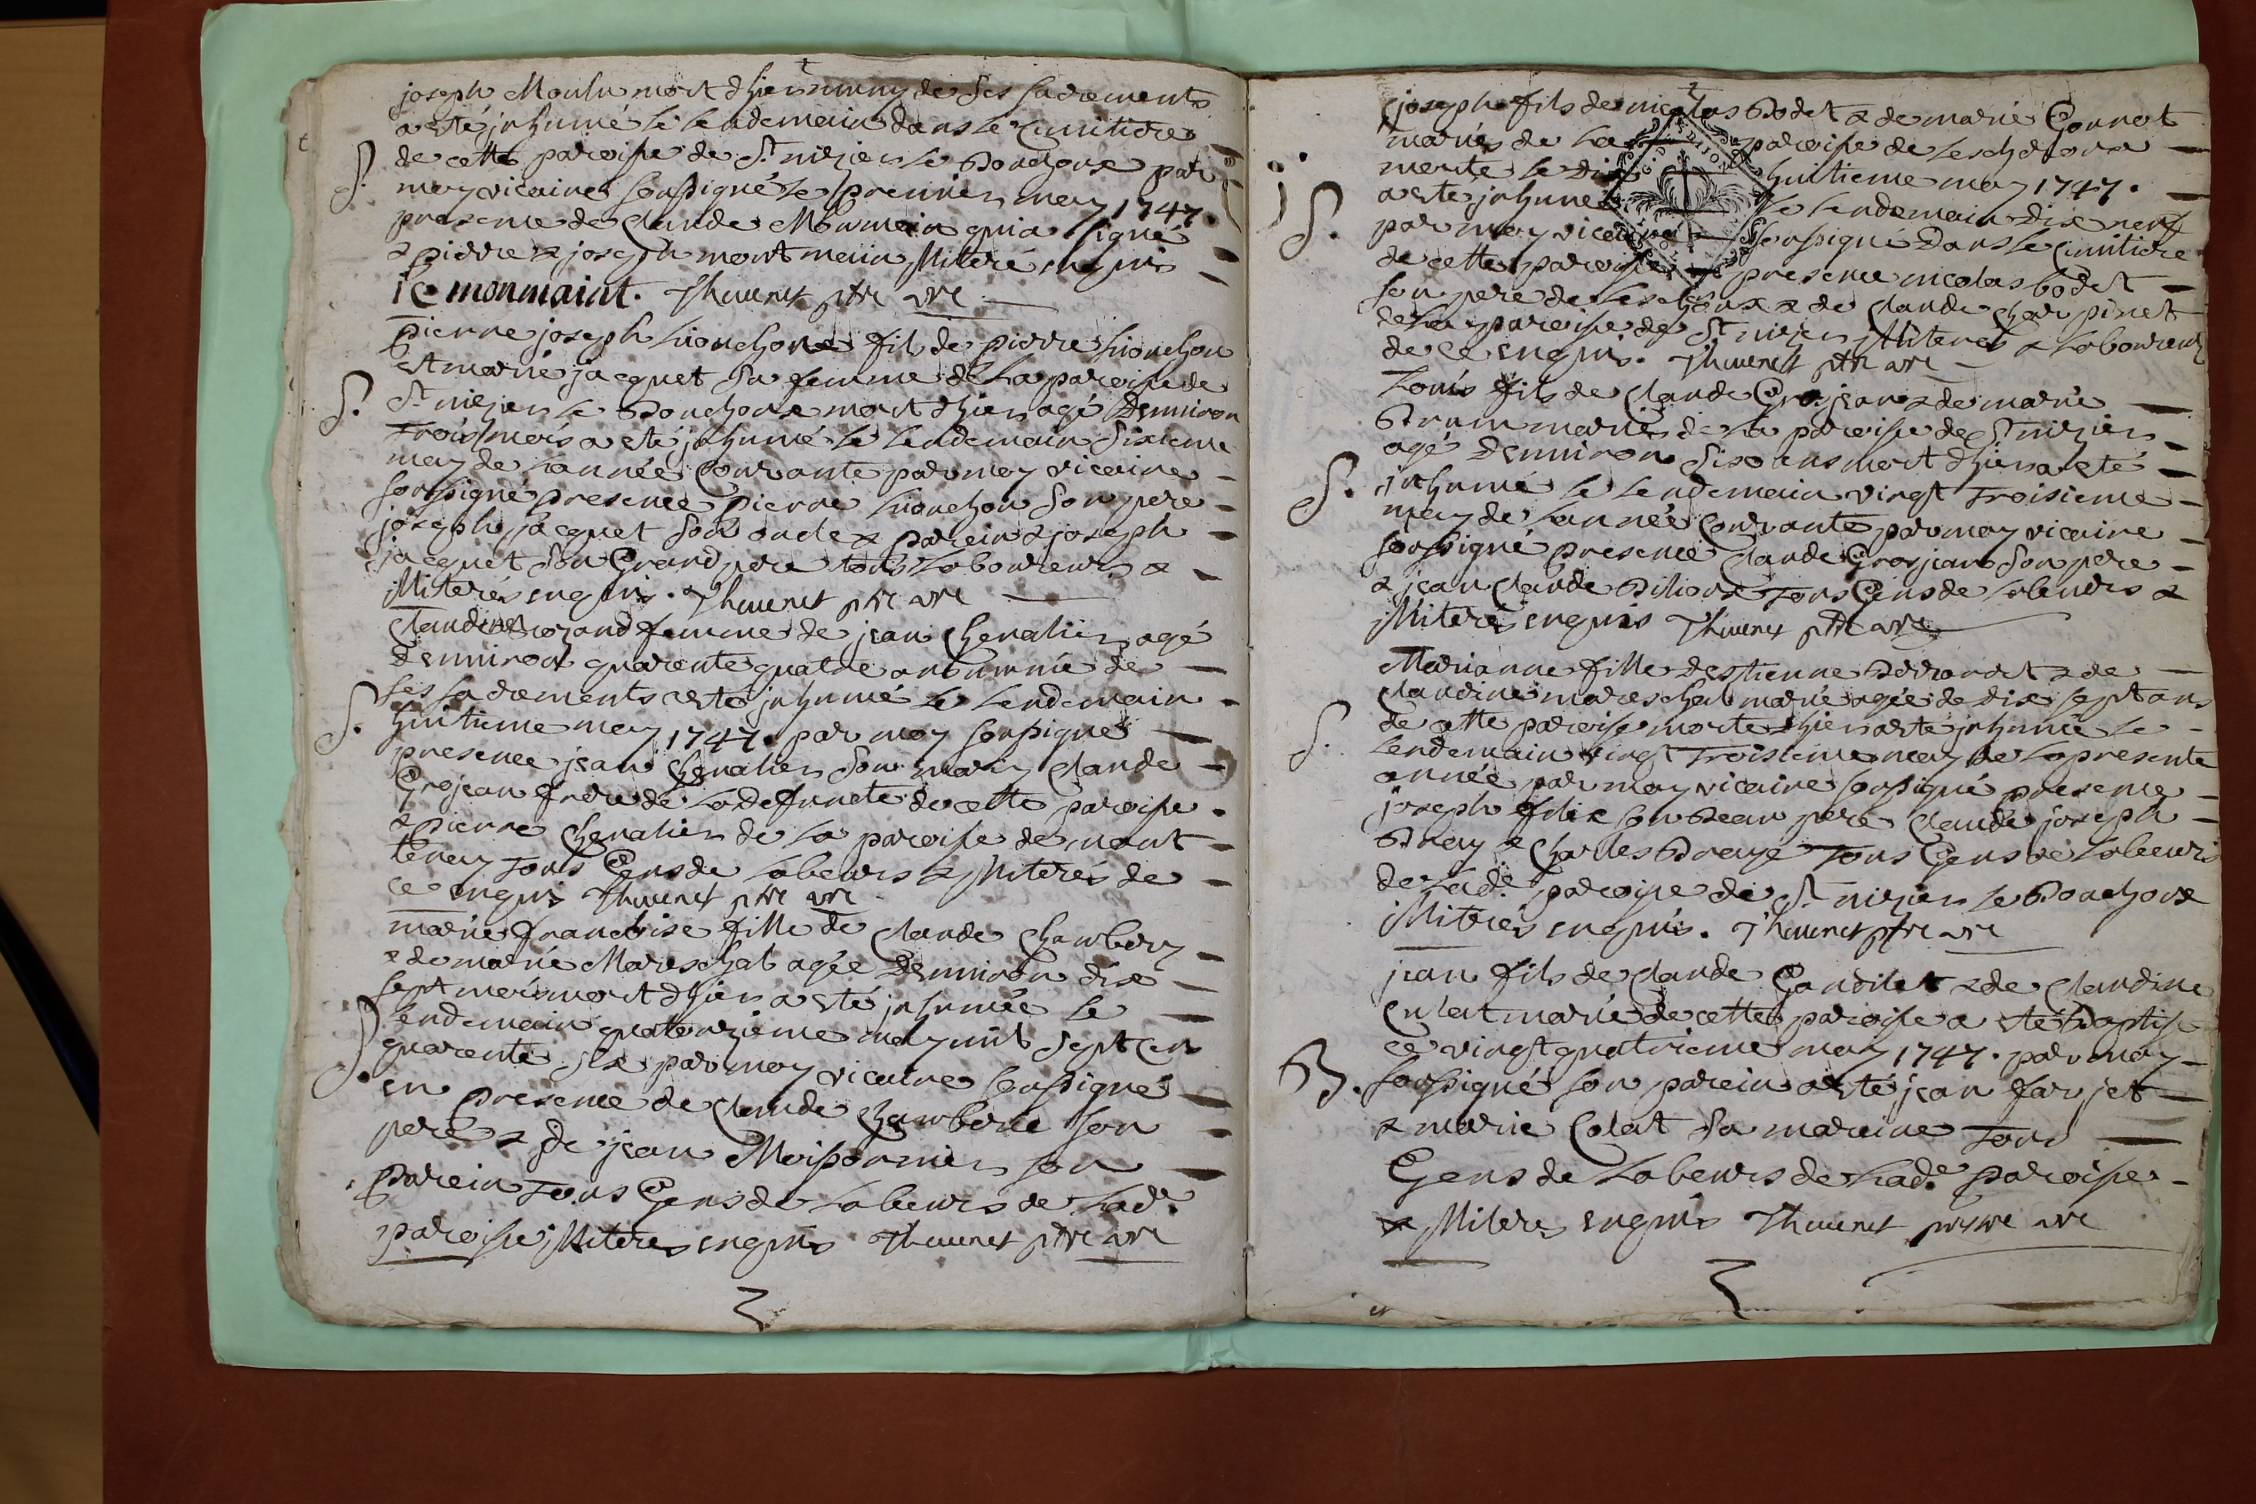 joseph Moulu mort d'hier muny de ses sacrements
a esté inhumé le lendemain dans le cimitiere
S. de cette paroisse de St nizier le Bouchoux par
moy vicaire soussigné le premier may 1747.
presence de Claude Monmain qui a signé
& pierre & joseph montmain illiteré enquis
monmaint. Thevenet ptre vre
Pierre joseph fils de pierre
et marie jacquet sa femme de la paroisse de
S. St nizier le Bouchoux mort d'hier agé d'environ
trois mois a esté inhumé le lendemain sixieme
may de l'année courante par moy vicaire
soussigné presence pierre son pere
joseph jacquet son oncle & parein & joseph
jacquet son Grand pere tous laboureurs &
illiterés enquis. Thevenet ptre vre
Claudine femme de jean Chevalier agé
d'environ quarente quatre ans munie de
ses sacrements a esté inhumé le lendemain
S. huitieme may 1747. par moy soussigné
presence jean Chevalier son mary Claude
Grojean frere de la defuncte de cette paroisse
& pierre Chevalier de la paroisse de mont
tous Gens de labeurs & illiterés de
ce enquis Thevenet ptre vre
marie francoise fille de Claude Chambery
& de marie Mareschal agée d'environ dix
sept mois mort d'hier a esté inhumée le
S. lendemain quatorzieme may mil sept cen
quarente par moy vicaire soussigné
en presence de Claude Chamberie son
pere & de jean Moissonnier son
parein tous Gens de labeurs de lade
paroisse illiteres enquis Thevenet ptre vre
joseph fils de nicolas Bodet & de marie Gonnet
mariés de la paroisse de leschaoux
morte le dix huitieme may 1747.
S. a esté inhumé le lendemain dix neuf
par moy vicaire soussigné dans le cimitiere
de cette paroisse presence nicolas bodet
son pere de & de Claude Charpinet
de la paroisse de St nizier illiterés & laboureurs
de ce enquis. Thevenet ptre vre
Louis fils de Claude Grosjean & de marie
Brun mariés de la paroisse de St nizier
agé d'environ six ans mort d'hier a esté
S. inhumé le lendemain vingt troisieme
may de l'année courante par moy vicaire
soussigné presence Claude Grosjean son pere
& jean Claude tous Gens de labeurs &
illiterés enquis Thevenet ptre vre
Marianne fille d'estienne & de
Claudine mareschal marié agée de dix sept ans
de cette paroisse morte d'hier a esté inhumée le
S. lendemain vingt troisieme may de la presente
année par moy vicaire soussigné presence
joseph felix son beau pere Claude joseph
Bray & Charles Braye tous Gens de labeurs
de lade. paroisse de St nizier le Bouchoux
illiterés enquis. Thevenet ptre vre
jean fils de Claude Gandilet & de Claudine
Culat marié de cette paroisse a esté baptisé
ce vingt quatrieme may 1747. par moy
B. soussigné son parein a esté jean farjet
& marie Colat sa mareine tous
Gens de labeurs de lade. paroisse
& illiteres enquis Thevenet prtre vre